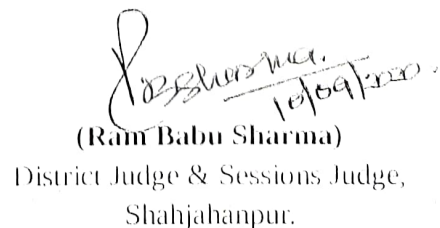 RBSharma.
10/09/2020.
(Ram Babu Sharma)
District Judge & Sessions Judge,
Shahjahanpur.